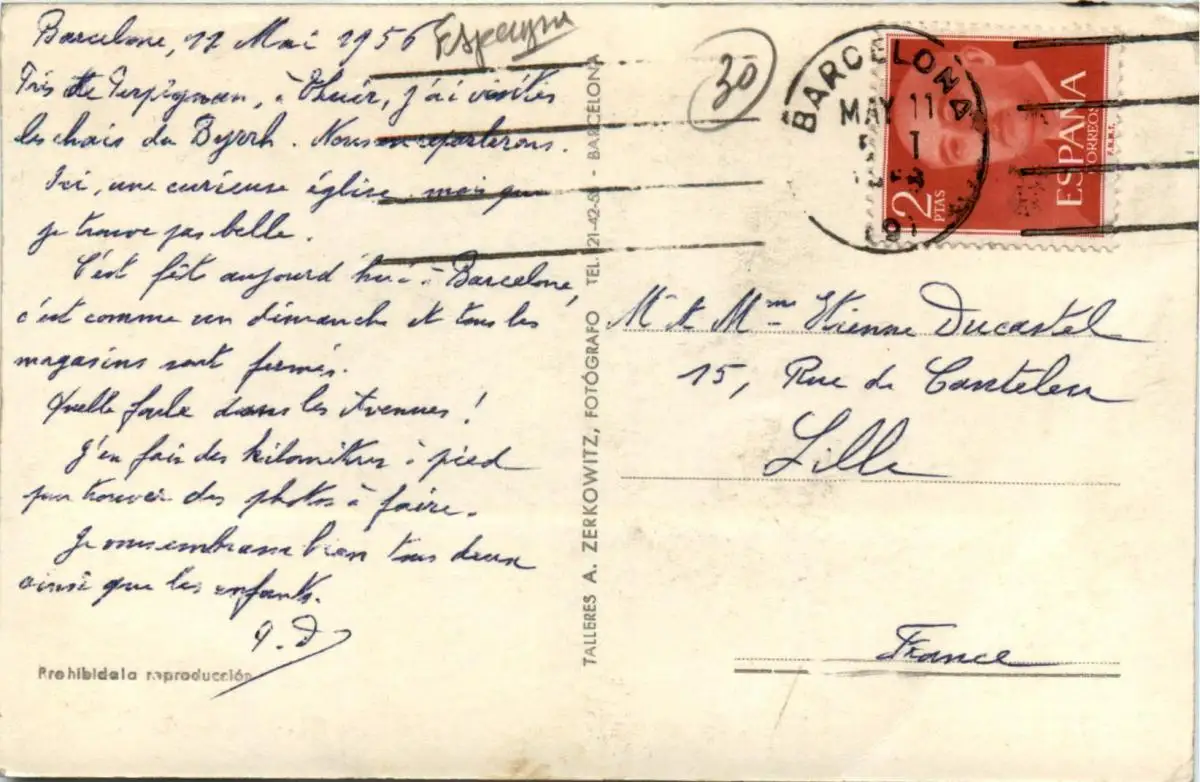 Barcelone, 11 Mai 1956
Espagne
Près de Perpignan, à Thuir, j'ai visités
les chais du Byrrh. Nous en reparlerons.
Ici, une curieuse église mais que
je trouve pas belle.
C'est fête aujourd'hui à Barcelone,
c'est comme un dimanche et tous les
magasins sont fermés.
Quelle foule dans les Avenues !
J'en fais des kilomètres à pied
pour trouver des photos à faire.
Je vous embrasse bien tous deux
ainsi que les enfants.
Prohibida la reproducción
TALLERES A. ZERKOWITZ, FOTÓGRAFO TEL. 21-42-56 - BARCELONA
30
BARCELONA
MAY 11
ESPAÑA
CORREOS
2 PTAS
F.N.M.T.
Mr & Mme Etienne Ducastel
15, Rue de Canteleu
Lille
France